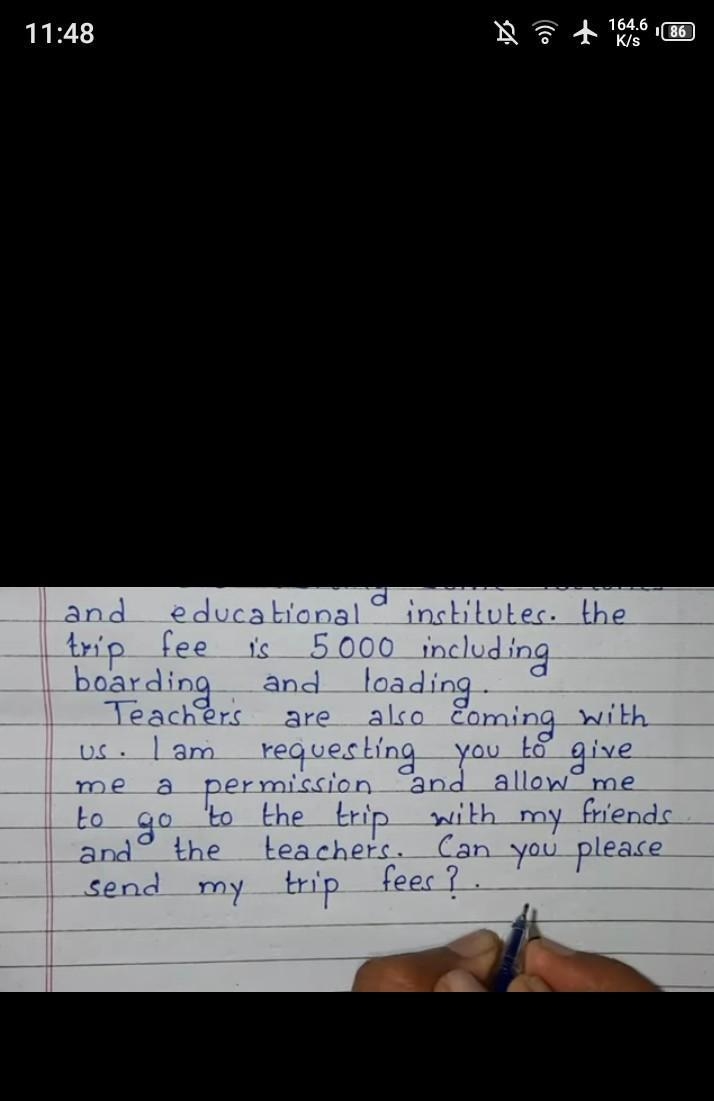 11:48
164.6
K/s
86
and educational institutes. the
trip fee is 5000 including
boarding and loading.
Teachers are also coming with
us. I am requesting you to give
me a permission and allow me
to go to the trip with my friends
and the teachers. Can you please
send my trip fees?.